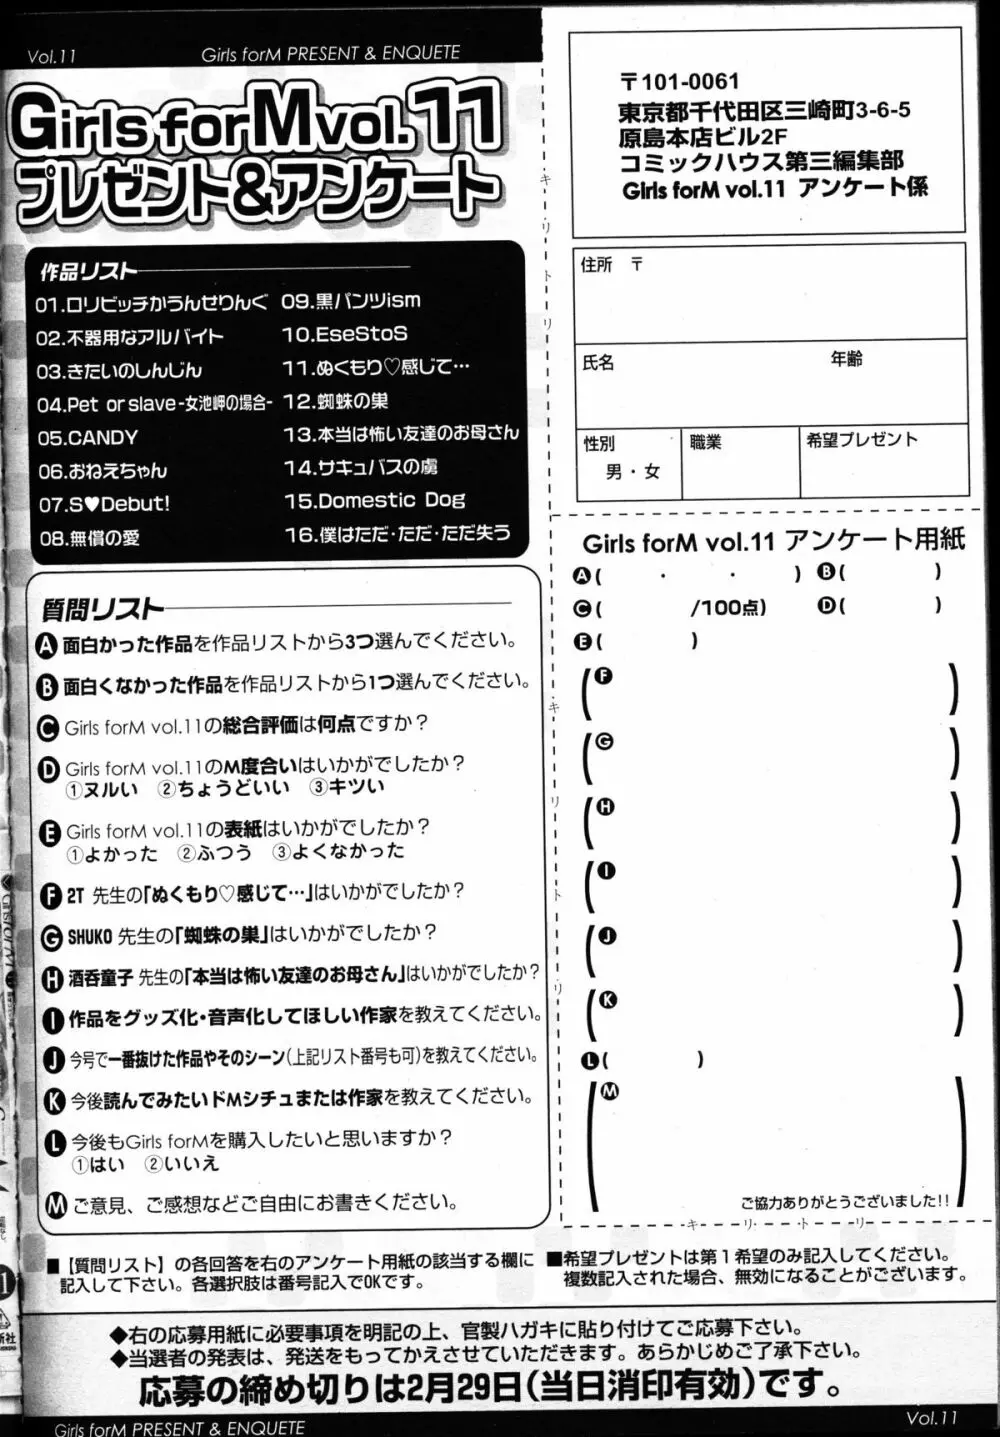 Vol.11
Girls forM PRESENT & ENQUETE
Girls forM vol.11
プレゼント&アンケート
作品リスト
01.ロリビッチかうんせりんぐ
02.不器用なアルバイト
03.きたいのしんじん
04.Pet or slave-女池岬の場合-
05.CANDY
06.おねえちゃん
07.S♥Debut!
08.無償の愛
09.黒パンツism
10.EseStoS
11.ぬくもり♡感じて…
12.蜘蛛の巣
13.本当は怖い友達のお母さん
14.サキュバスの虜
15.Domestic Dog
16.僕はただ・ただ・ただ失う
質問リスト
A 面白かった作品を作品リストから3つ選んでください。
B 面白くなかった作品を作品リストから1つ選んでください。
C Girls forM vol.11の総合評価は何点ですか？
D Girls forM vol.11のM度合いはいかがでしたか？
①ヌルい ②ちょうどいい ③キツい
E Girls forM vol.11の表紙はいかがでしたか？
①よかった ②ふつう ③よくなかった
F 2T 先生の「ぬくもり♡感じて…」はいかがでしたか？
G SHUKO 先生の「蜘蛛の巣」はいかがでしたか？
H 酒呑童子 先生の「本当は怖い友達のお母さん」はいかがでしたか？
I 作品をグッズ化・音声化してほしい作家を教えてください。
J 今号で一番抜けた作品やそのシーン（上記リスト番号も可）を教えてください。
K 今後読んでみたいドMシチュまたは作家を教えてください。
L 今後もGirls forMを購入したいと思いますか？
①はい ②いいえ
M ご意見、ご感想などご自由にお書きください。
〒101-0061
東京都千代田区三崎町3-6-5
原島本店ビル2F
コミックハウス第三編集部
Girls forM vol.11 アンケート係
住所 〒
氏名
年齢
性別
男・女
職業
希望プレゼント
キリトリ
Girls forM vol.11 アンケート用紙
A（ ・ ・ ）
B（ ）
C（ /100点）
D（ ）
E（ ）
F
G
H
I
J
K
L（ ）
M
ご協力ありがとうございました!!
キリトリ
キリトリ
■【質問リスト】の各回答を右のアンケート用紙の該当する欄に
記入して下さい。各選択肢は番号記入でOKです。
■希望プレゼントは第１希望のみ記入してください。
複数記入された場合、無効になることがございます。
◆右の応募用紙に必要事項を明記の上、官製ハガキに貼り付けてご応募下さい。
◆当選者の発表は、発送をもってかえさせていただきます。あらかじめご了承下さい。
応募の締め切りは2月29日（当日消印有効）です。
Girls forM PRESENT & ENQUETE
Vol.11